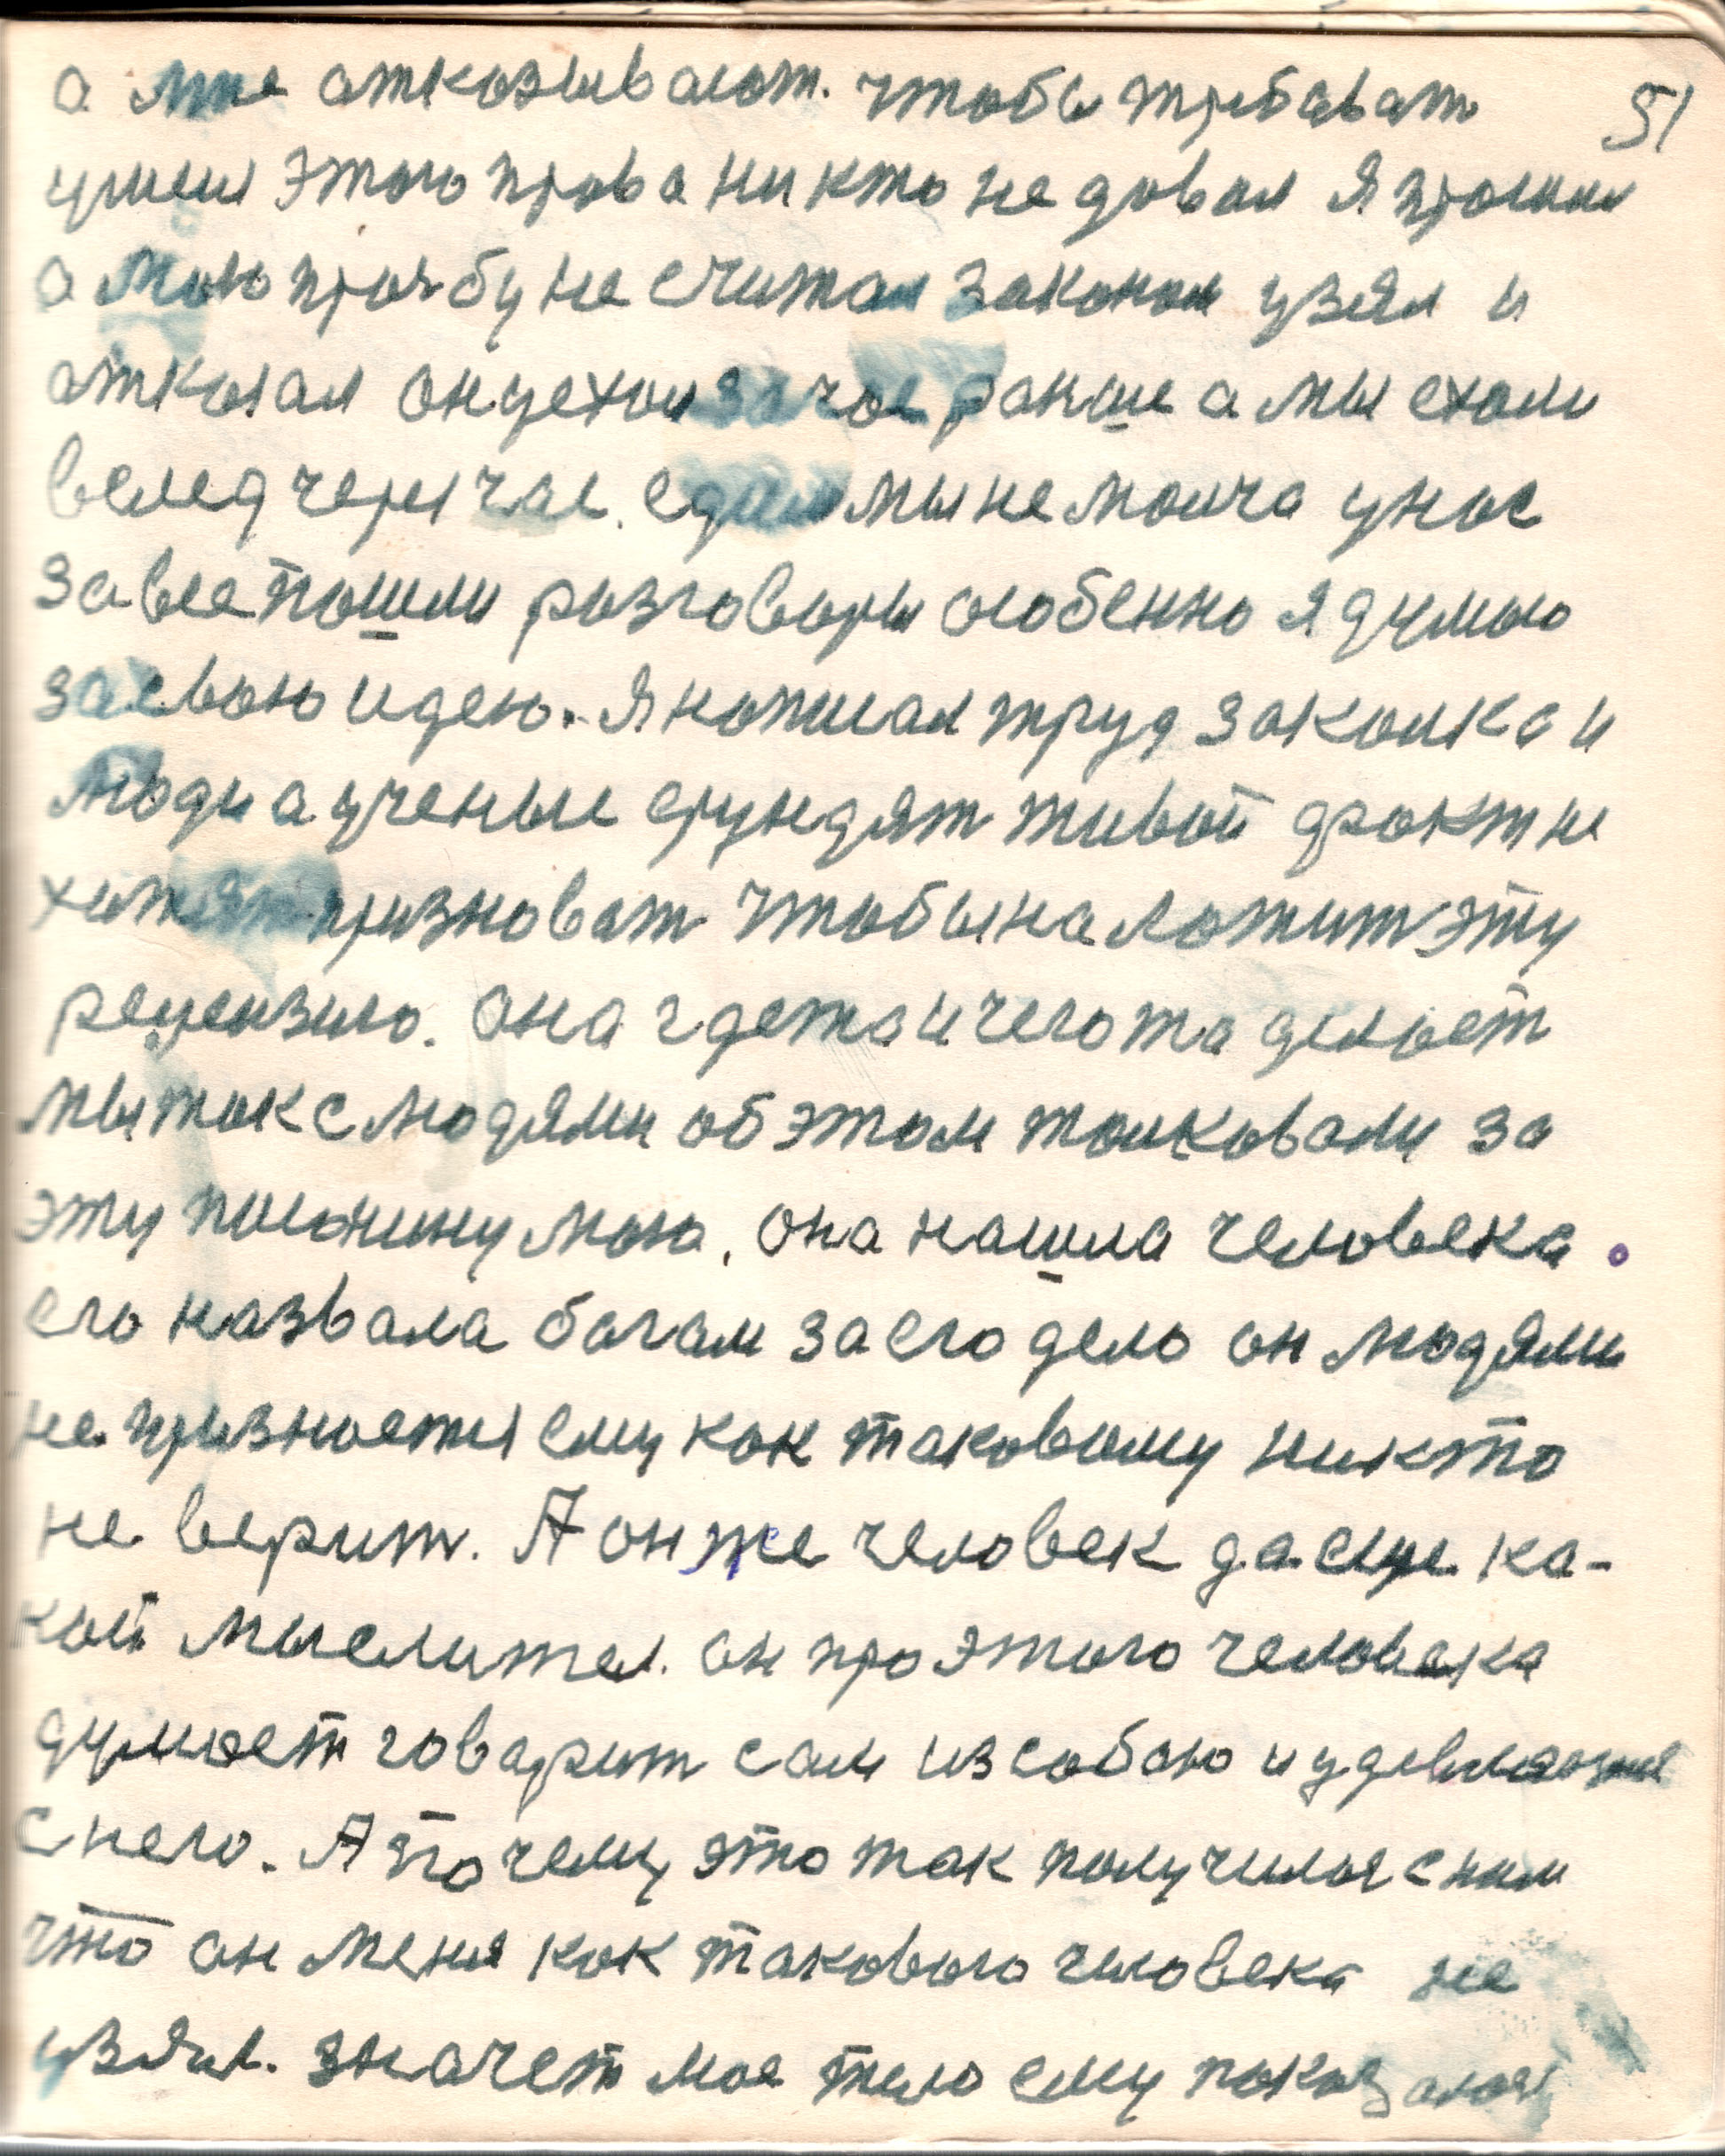 а мне атказывают. чтобы требават
51
умеш этого права ни кто не давал я прошил
а мою прозбу не считал законом узял и
атказал он уехал за час ранше а мы ехали
вслед через час. едим мы не молча у нас
за все пошли разговоры особенно я думаю
за свою идею. Я написал труд закалка и
люди а ученые ерундят живой факт не
хитят признават чтобы наложит эту
рецензию. Она где та и чего та делает
мы так с людями об этом толковали за
эту писанину мою, она нашла человека.
его назвала богам за его дело он людями
не признается ему как таковому никто
не верит. А он же человек да еще ка-
кой мыслител. он про этого человека
думает говарит сам из собою и удевляется
с него. А почему это так получилося с ним
что он меня как такового человека не
узял. значет мое тело ему показалося